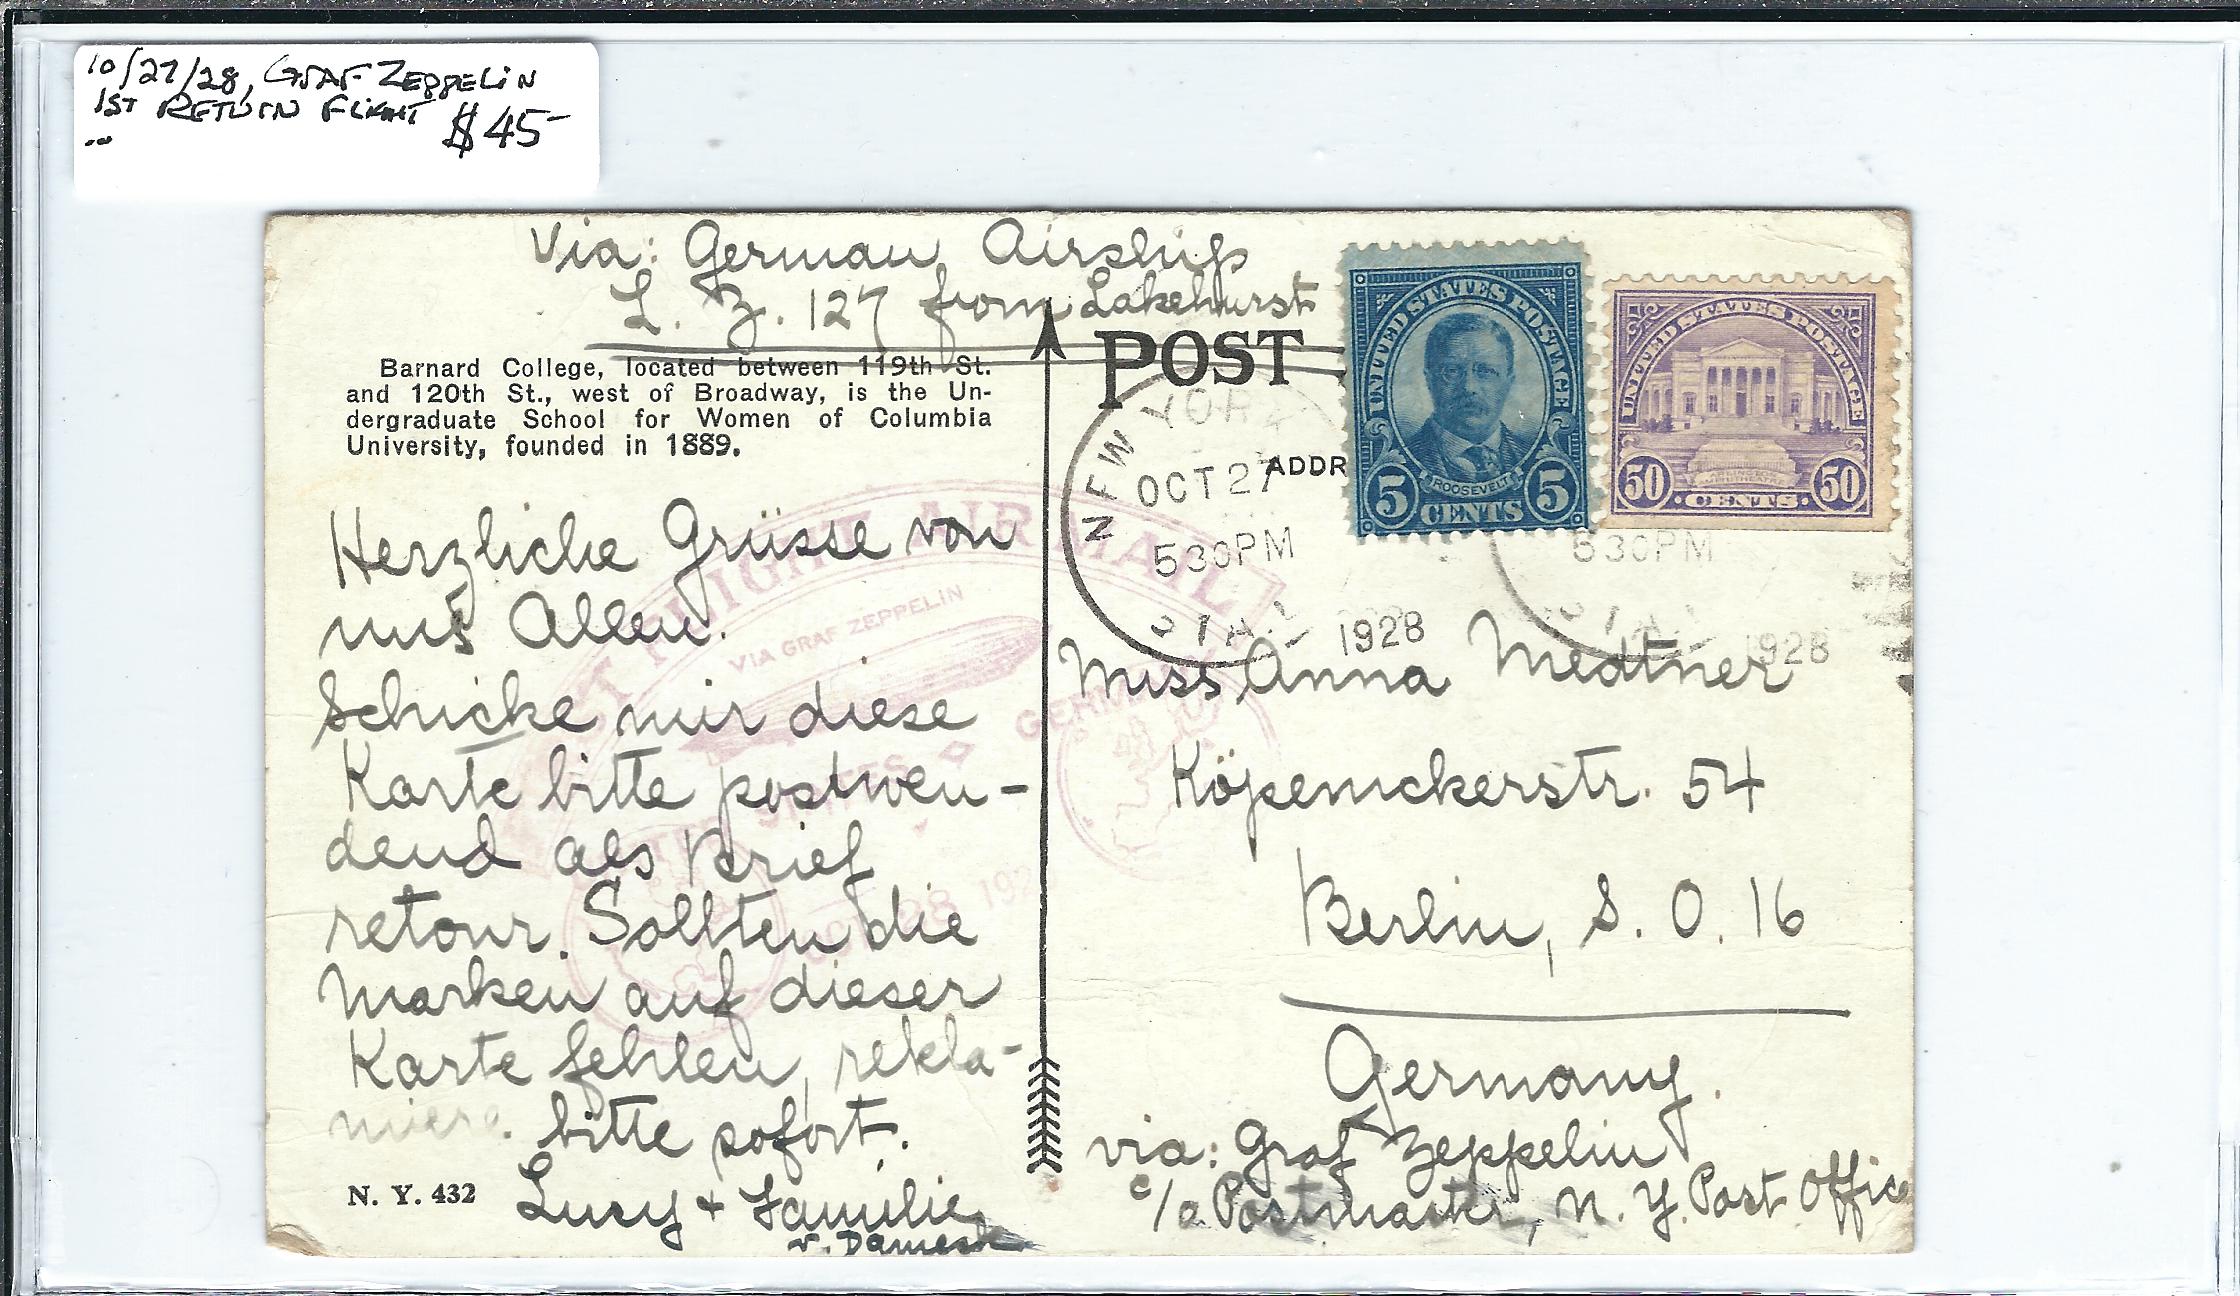 10/27/28, GRAF ZEPPELIN
1ST RETURN FLIGHT
$45-
Via: German Airship
L. Z. 127 from Lakehurst
Barnard College, located between 119th St.
and 120th St., west of Broadway, is the Un-
dergraduate School for Women of Columbia
University, founded in 1889.
POST
ADDR
NEW YORK
OCT 27
530PM
STA.
1928
530PM
STA.
1928
UNITED STATES POSTAGE
ROOSEVELT
5 CENTS 5
UNITED STATES POSTAGE
50 CENTS 50
FIRST FLIGHT AIR MAIL
VIA GRAF ZEPPELIN
UNITED STATES GERMANY
OCT 28 1928
Herzliche Grüsse von
uns Allen.
Schicke mir diese
Karte bitte postwen-
dend als Brief
retour. Sollten die
Marken auf dieser
Karte fehlen, rekla-
miere bitte sofort.
Lucy + Familie
N. Y. 432
Miss Anna Medtner
Köpenickerstr. 54
Berlin, S. O. 16
Germany.
via: Graf Zeppelin
c/o Postmaster, N. Y. Post Office